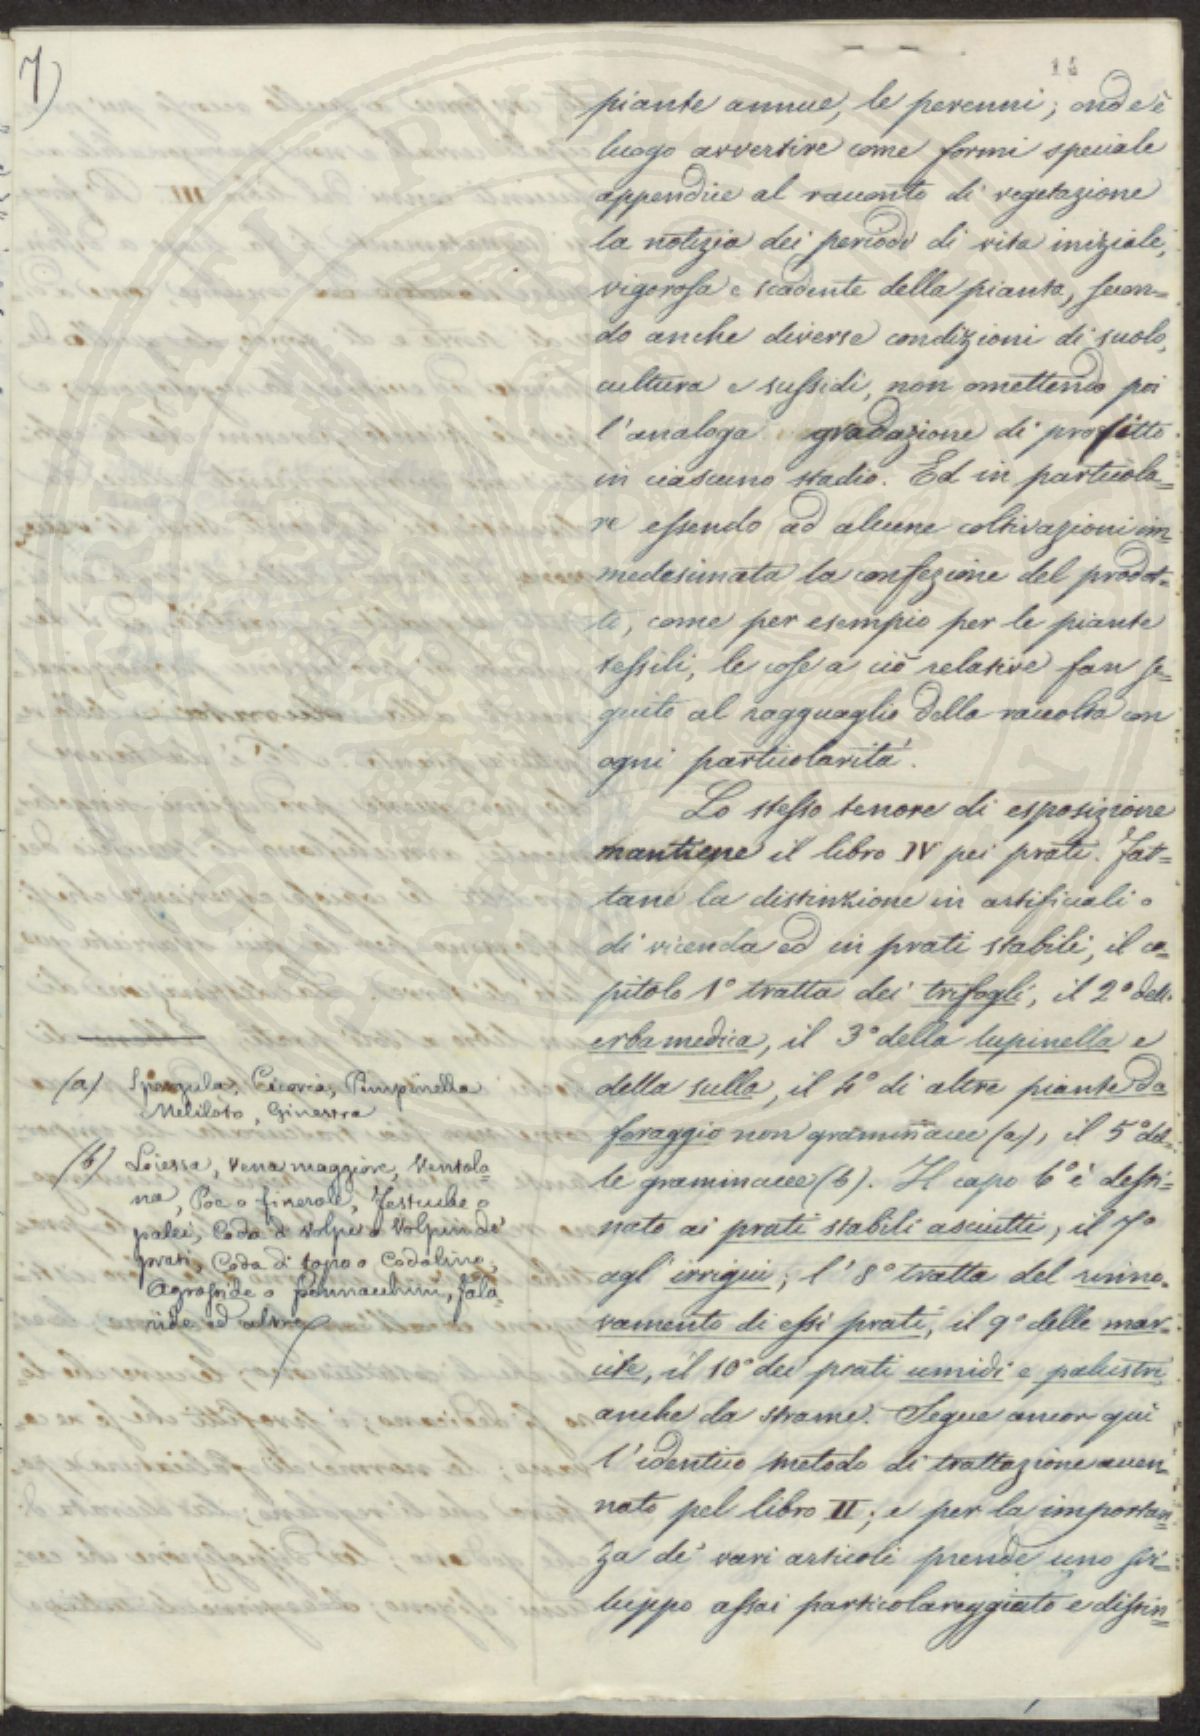 7)
14
piante annue, le perenni; ond'è
luogo avvertire come formi speciale
appendice al racconto di vegetazione
la notizia dei periodi di vita iniziale,
vigorosa e scadente della pianta, secon=
do anche diverse condizioni di suolo,
cultura e sussidi, non omettendo poi
l'analoga gradazione di profitto
in ciascuno stadio. Ed in particola=
re essendo ad alcune coltivazioni im=
medesimata la confezione del prodot=
to, come per esempio per le piante
tessili, le cose a ciò relative fan se=
guito al ragguaglio della raccolta con
ogni particolarità.
Lo stesso tenore di esposizione
mantiene il libro IV pei prati. Fat=
tane la distinzione in artificiali o
di vicenda ed in prati stabili, il ca=
pitolo 1º tratta dei trifogli, il 2º dell'
erba medica, il 3º della lupinella e
della sulla, il 4º di altre piante da
foraggio non graminacee (a), il 5º del=
le graminacee (b). Il capo 6º è desti=
nato ai prati stabili asciutti, il 7º
agl' irrigui; l' 8º tratta del rinno=
vamento di essi prati, il 9º delle mar=
cite, il 10º dei prati umidi e palustri,
anche da strame. Segue ancor qui
l'identico metodo di trattazione accen=
nato pel libro II; e per la importan=
za de' vari articoli prende uno svi=
luppo assai particolareggiato e distin=
(a) Spergula, Cicoria, Pimpinella
Meliloto, Ginestra
(b) Loiessa, Vena maggiore, Ventola=
na, Poe o fienarole, Festuche o
palei, Coda di Volpe o Volpin de'
prati, Coda di topo o Codolino,
Agrostide o pennacchini, Fala=
ride ed altre